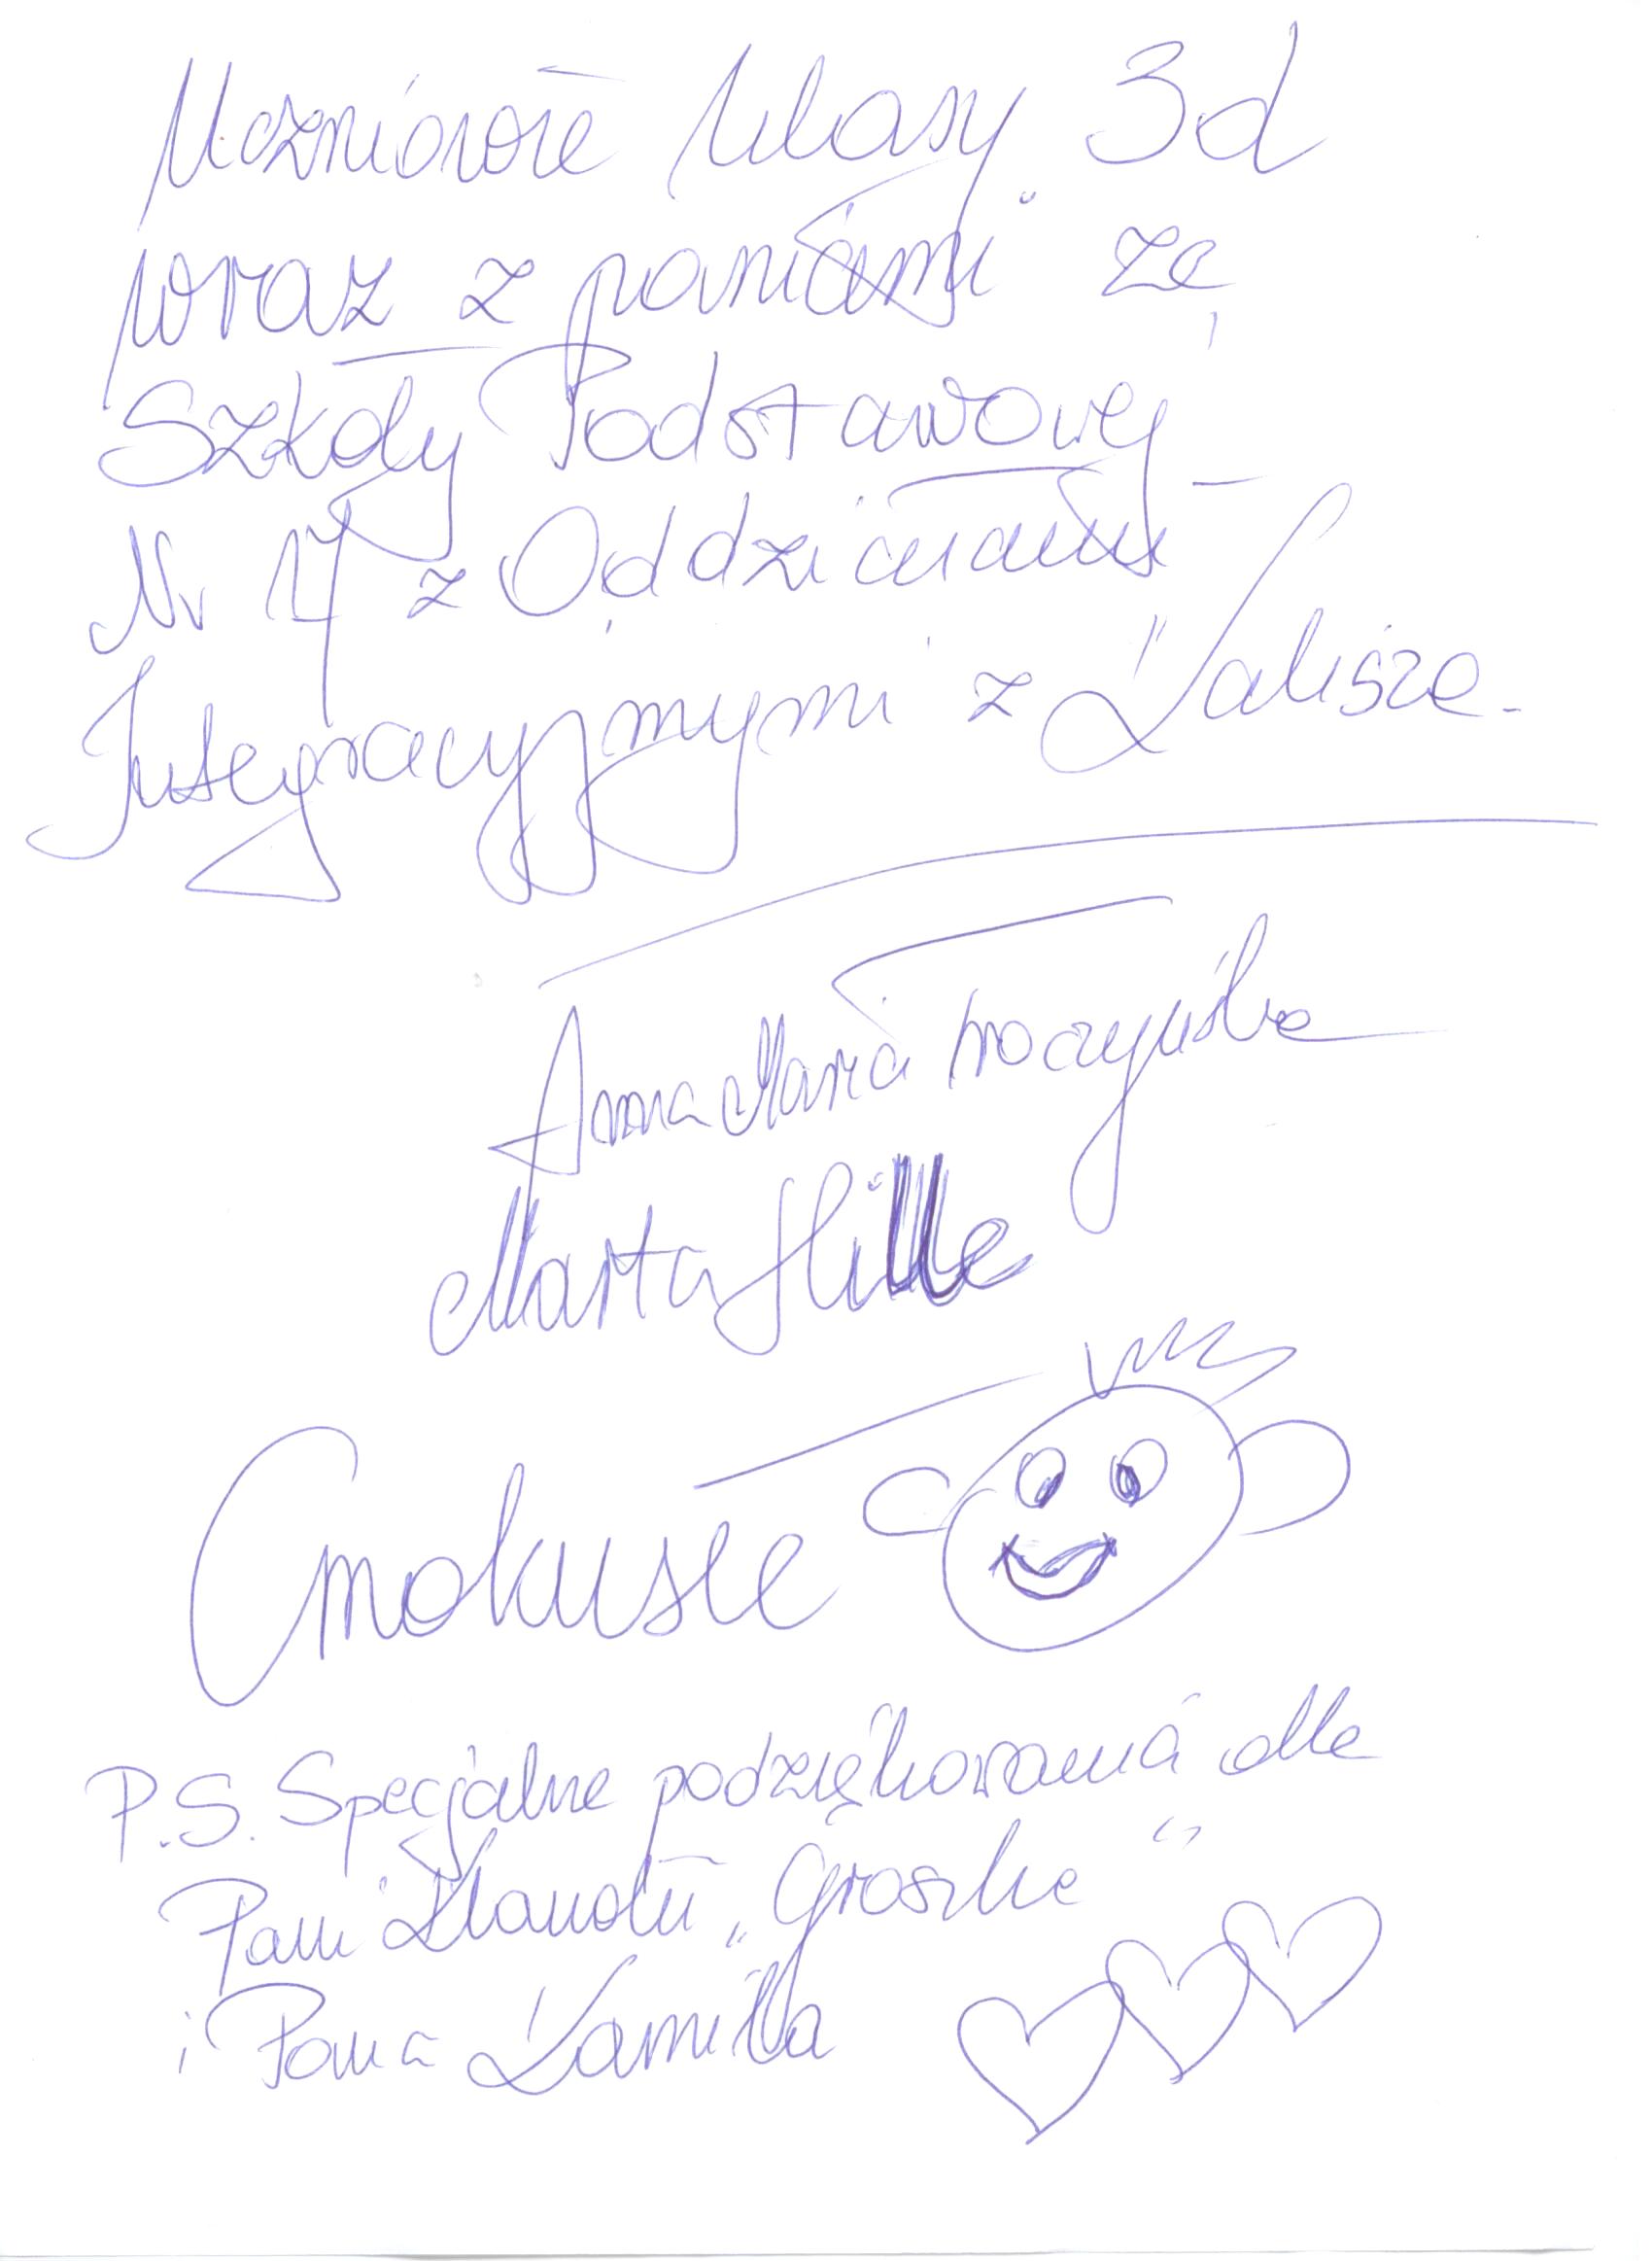 Uczniowie klasy 3d
wraz z paniami ze
Szkoły Podstawowej
Nr 17 z Oddziałami
Integracyjnymi z Kalisza.
Anna Maria
Marta Hille
Cmokusie
P.S. Specjalne podziękowania dla
Pani Klaudii „Groszka”
i Pana Kamila